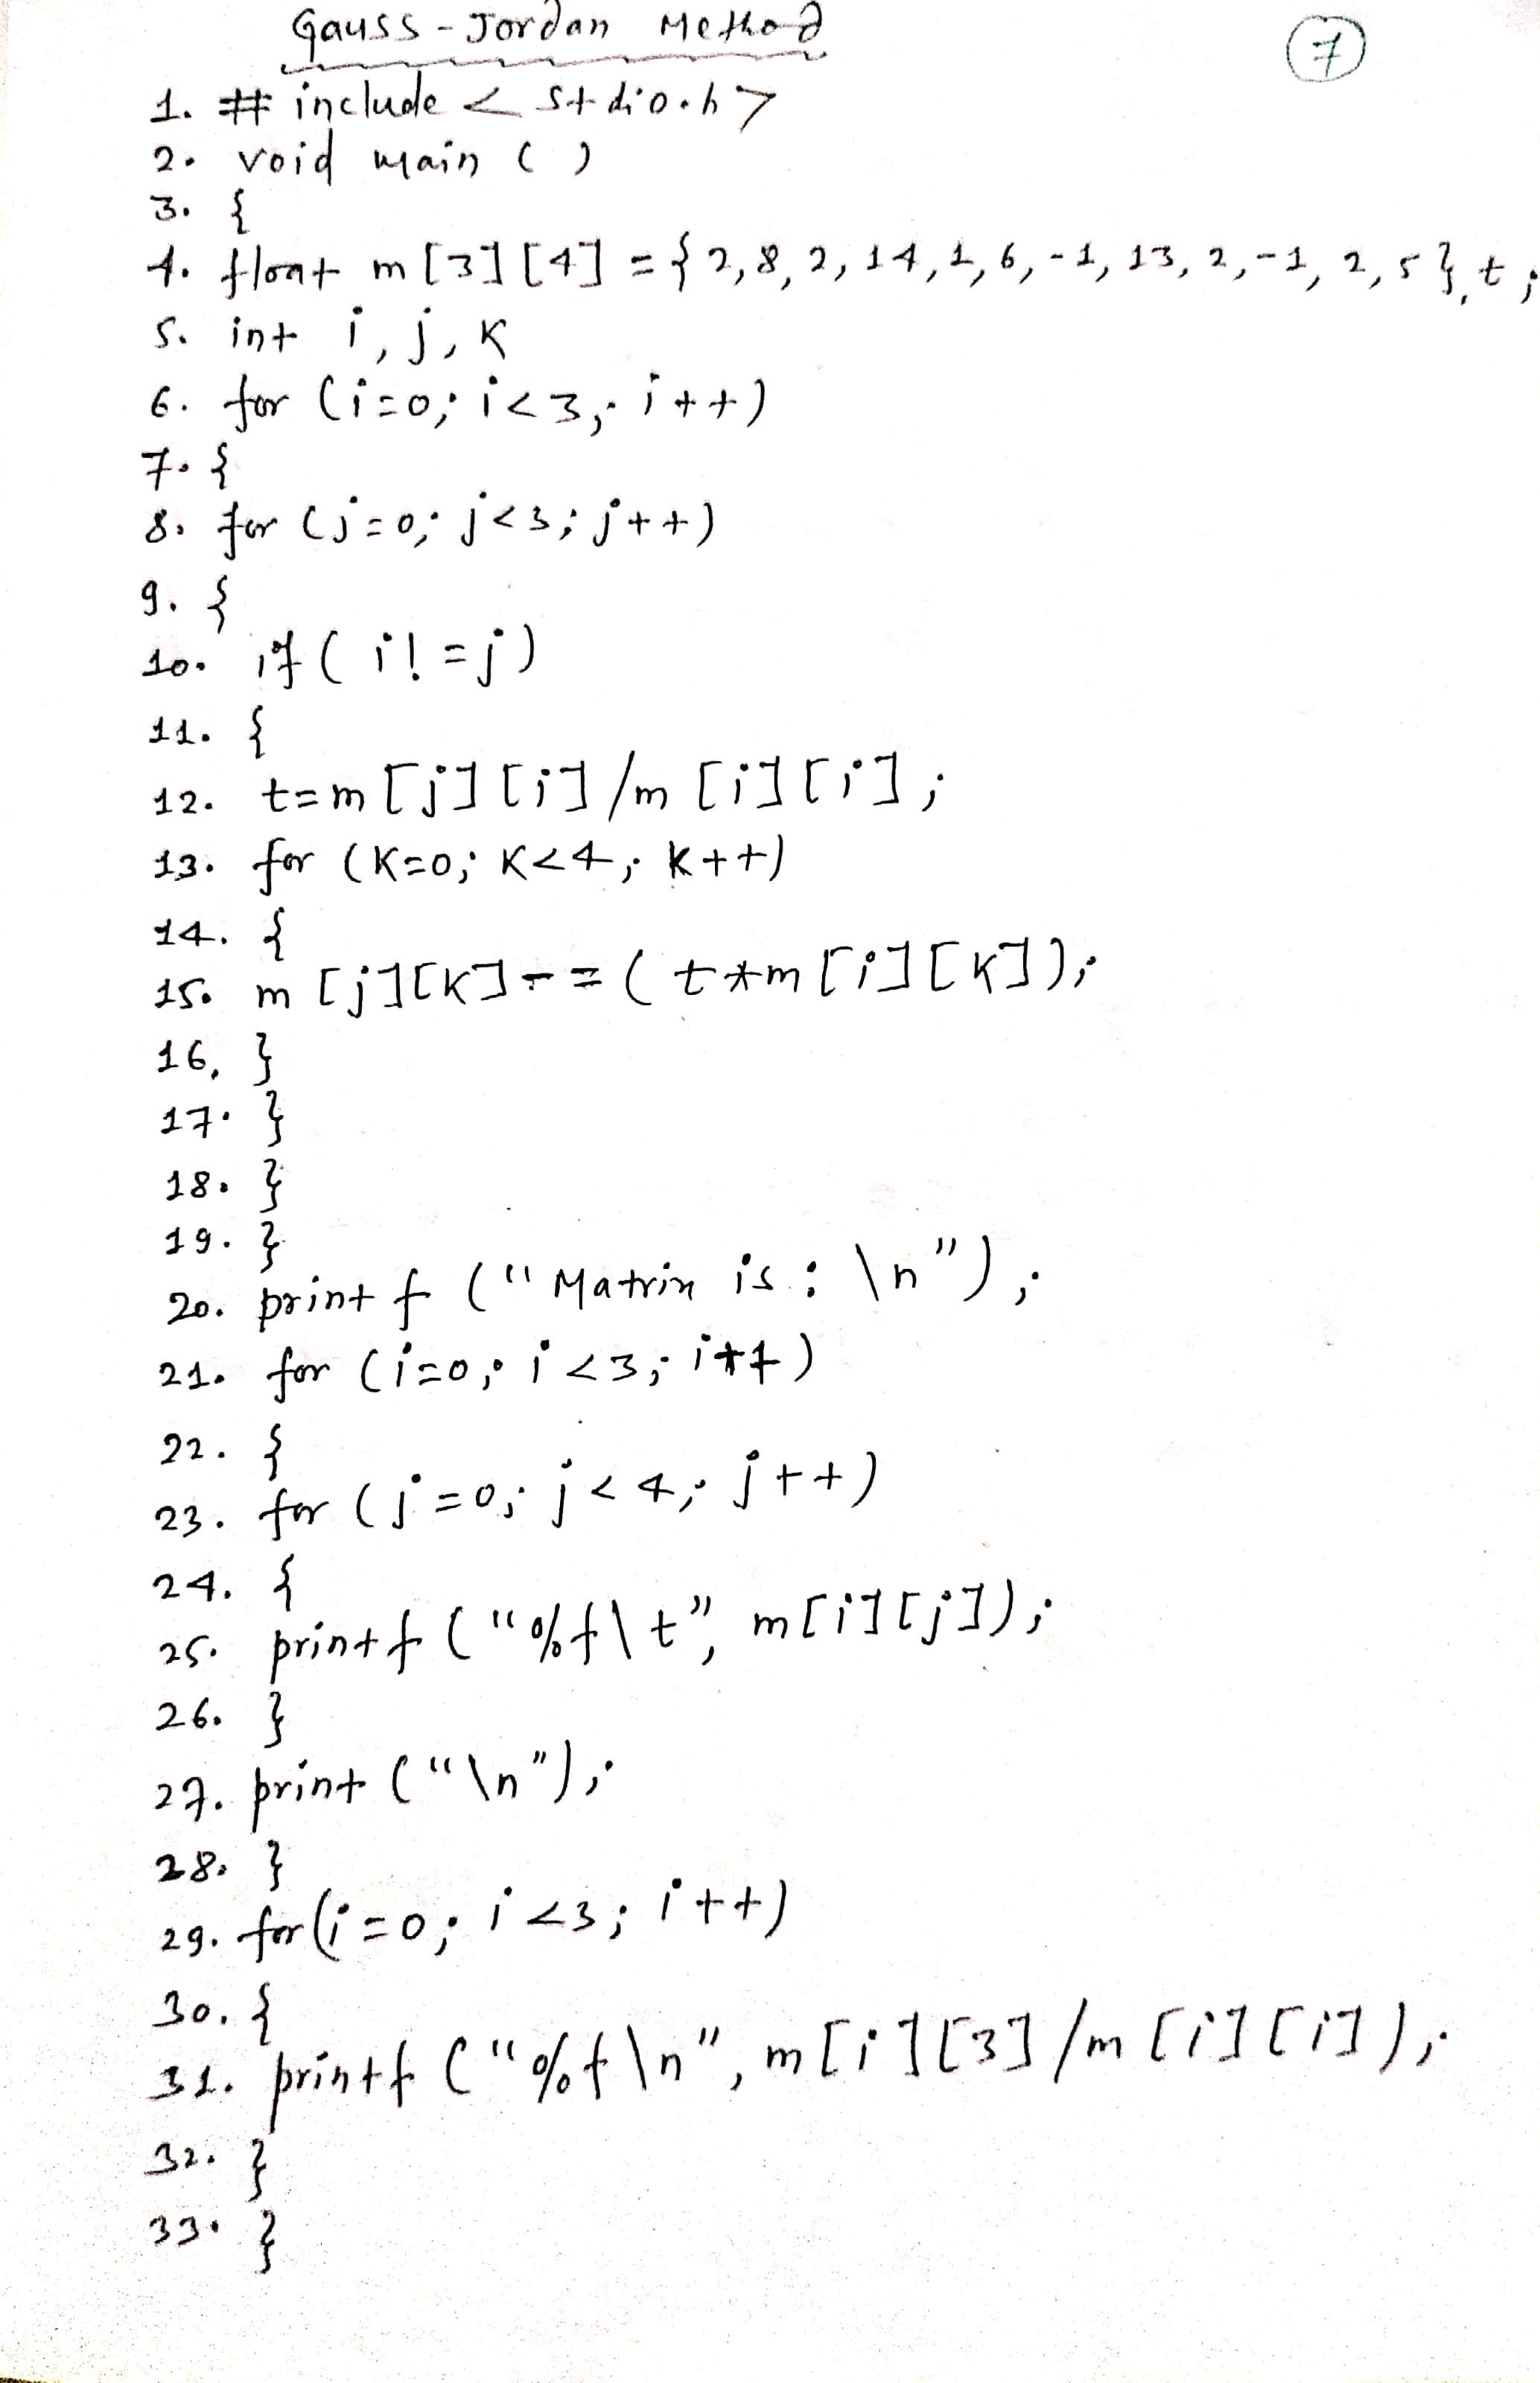 Gauss-Jordan Method
7
1. # include < stdio.h>
2. void main ( )
3. {
4. float m [3] [4] = { 2,8,2,14,1,6,-1,13,2,-1,2,5 }, t;
5. int i, j, k
6. for (i=0; i<3; i++)
7. {
8. for (j=0; j<3; j++)
9. {
10. if ( i! =j)
11. {
12. t=m [j] [i] /m [i] [i];
13. for (k=0; k<4; k++)
14. {
15. m [j][k] -= ( t*m [i] [k]);
16. }
17. }
18. }
19. }
20. printf ("Matrix is : \n");
21. for (i=0; i<3; i++)
22. {
23. for (j=0; j<4; j++)
24. {
25. printf ("%f\t", m[i][j]);
26. }
27. print ("\n");
28. }
29. for(i=0; i<3; i++)
30. {
31. printf ("%f\n", m[i][3]/m[i][i]);
32. }
33. }